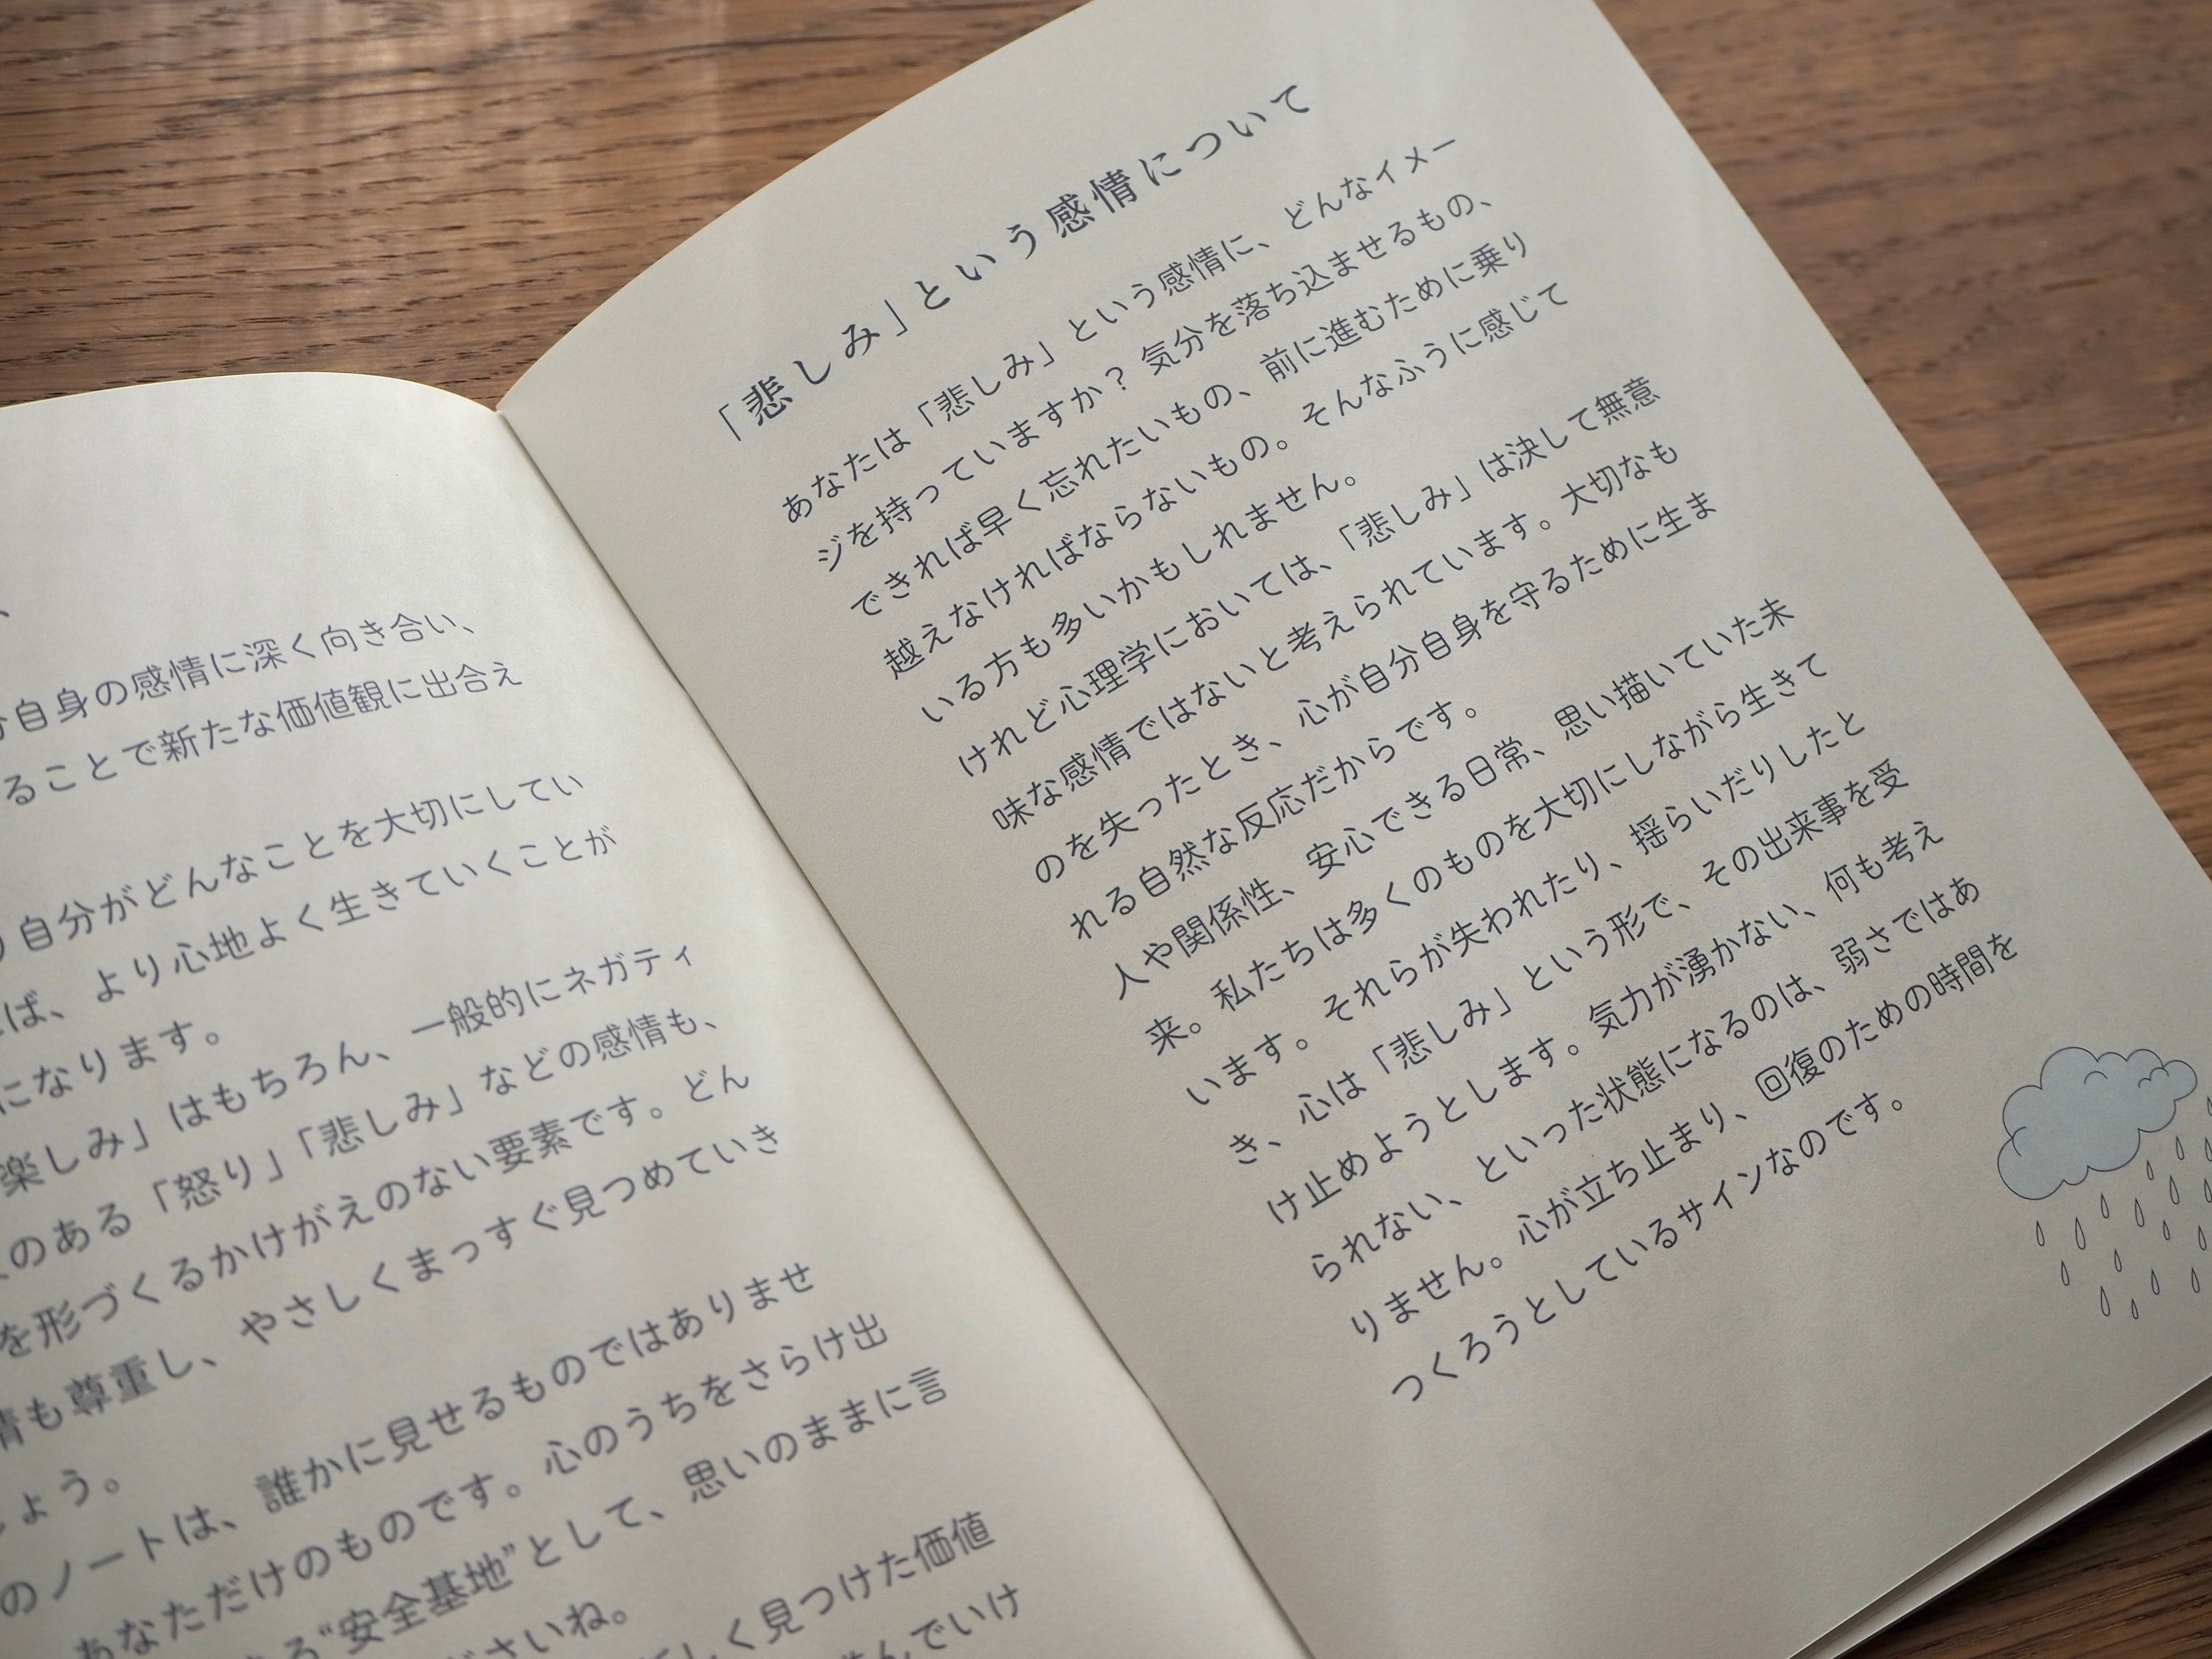 、
自身の感情に深く向き合い、
ることで新たな価値観に出合え
自分がどんなことを大切にしてい
ば、より心地よく生きていくことが
になります。
楽しみ」はもちろん、一般的にネガティ
のある「怒り」「悲しみ」などの感情も、
を形づくるかけがえのない要素です。どん
情も尊重し、やさしくまっすぐ見つめていき
ょう。
のノートは、誰かに見せるものではありませ
あなただけのものです。心のうちをさらけ出
る“安全基地”として、思いのままに言
ださいね。
しく見つけた価値
んでいけ
「悲しみ」という感情について
あなたは「悲しみ」という感情に、どんなイメー
ジを持っていますか？ 気分を落ち込ませるもの、
できれば早く忘れたいもの、前に進むために乗り
越えなければならないもの。そんなふうに感じて
いる方も多いかもしれません。
けれど心理学においては、「悲しみ」は決して無意
味な感情ではないと考えられています。大切なも
のを失ったとき、心が自分自身を守るために生ま
れる自然な反応だからです。
人や関係性、安心できる日常、思い描いていた未
来。私たちは多くのものを大切にしながら生きて
います。それらが失われたり、揺らいだりしたと
き、心は「悲しみ」という形で、その出来事を受
け止めようとします。気力が湧かない、何も考え
られない、といった状態になるのは、弱さではあ
りません。心が立ち止まり、回復のための時間を
つくろうとしているサインなのです。